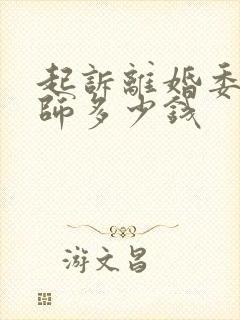 起訴離婚委
師多少錢
游文昌